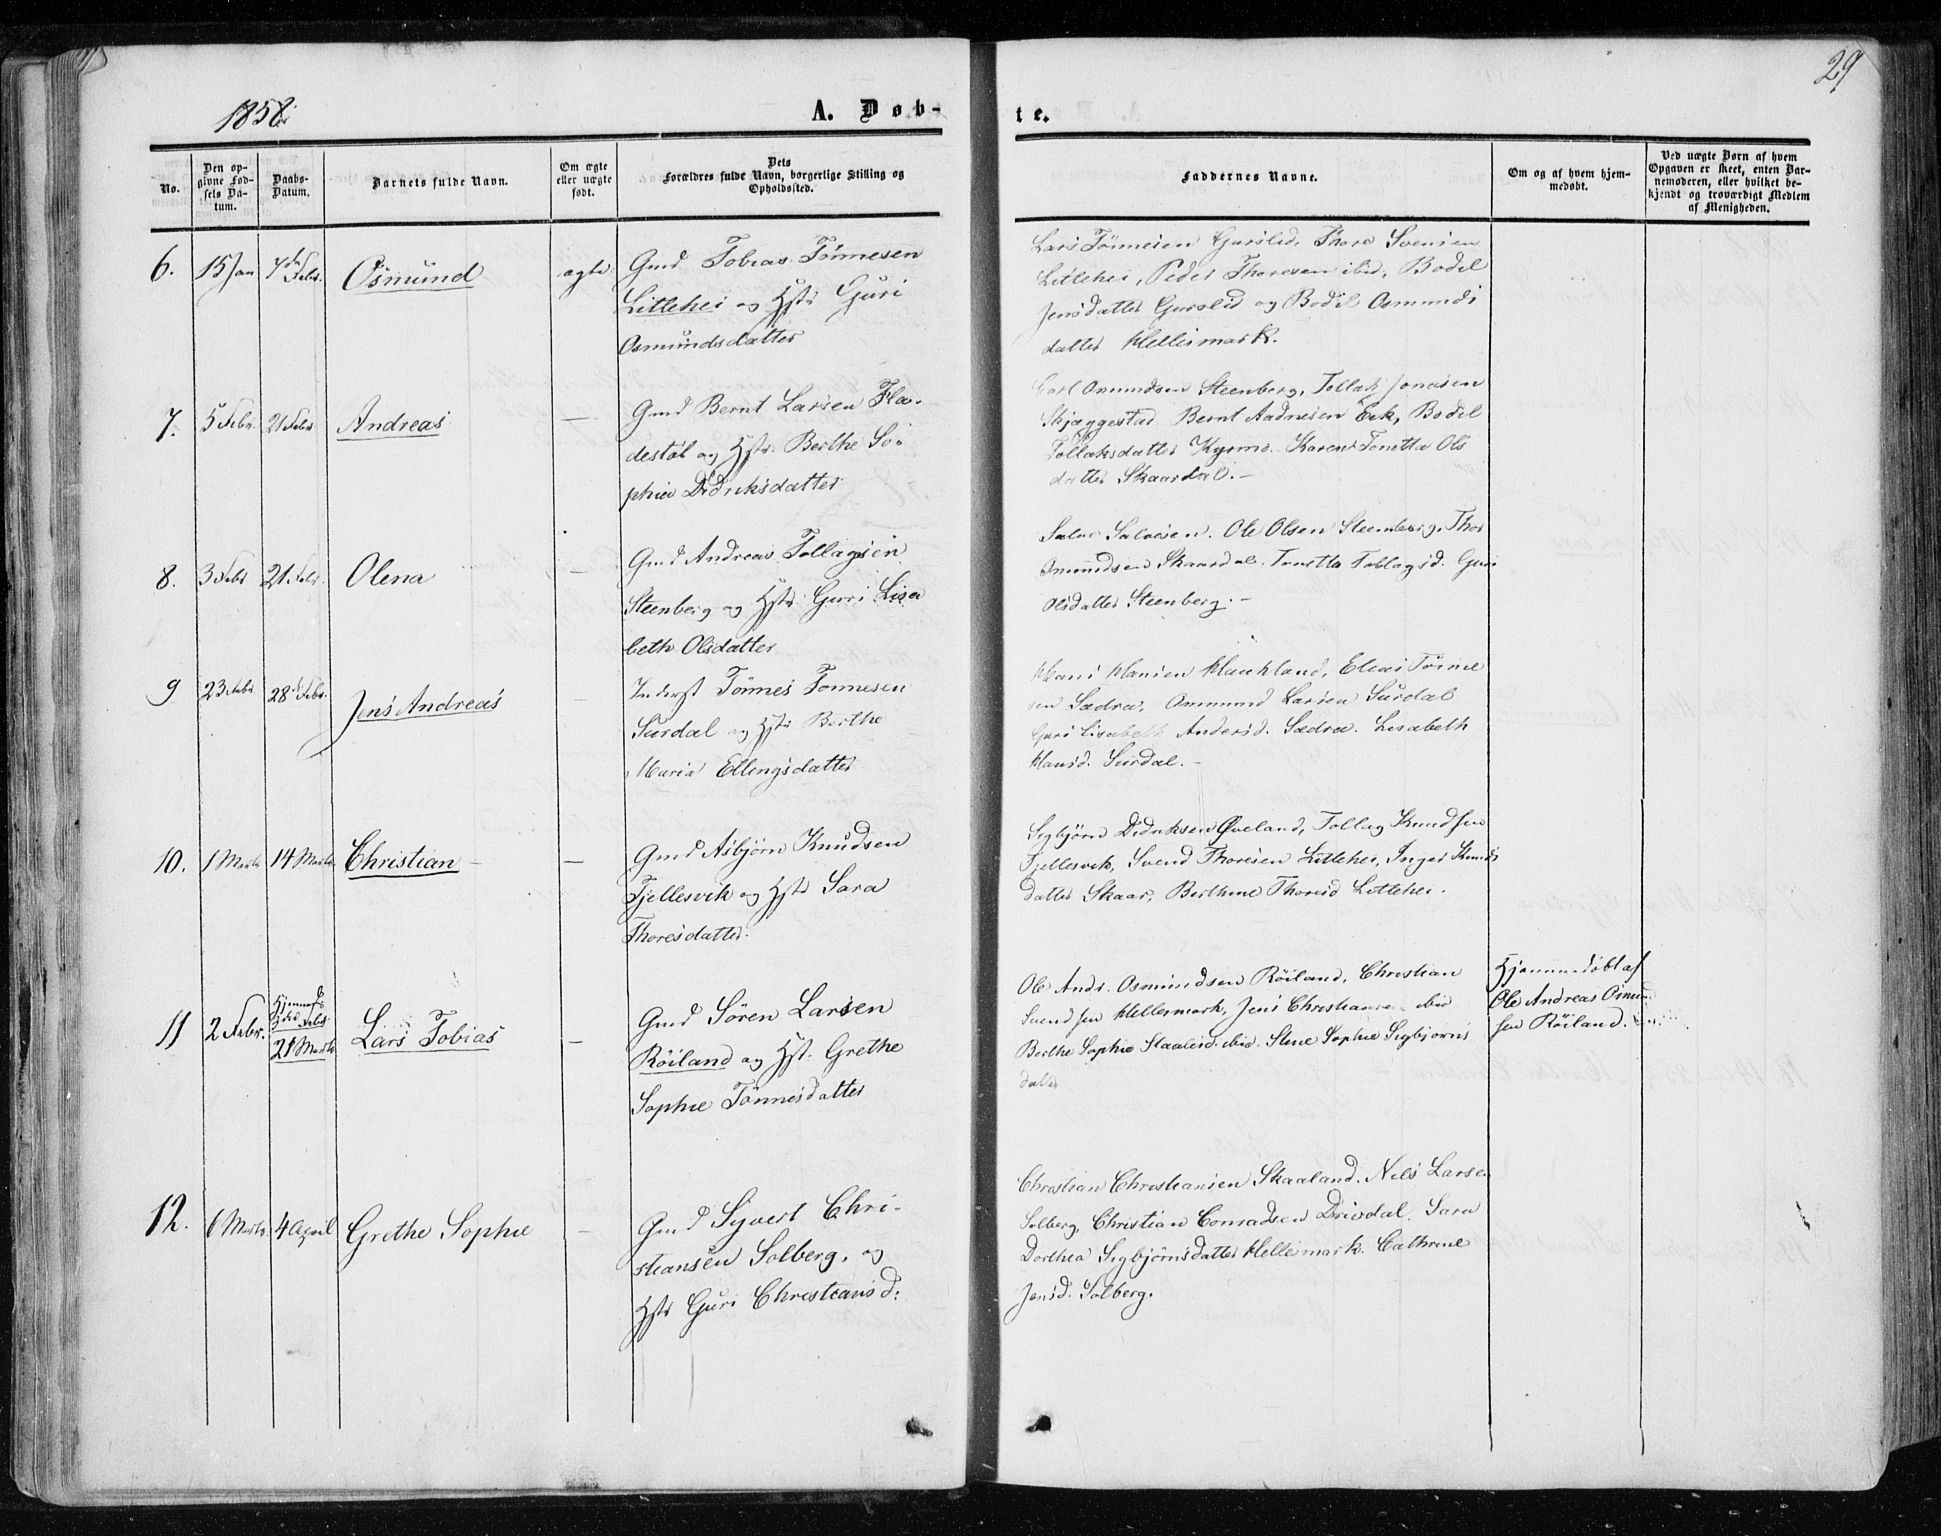 29
1858
A. Døb-
te.
No.
Den op-
givne Fød-
sels Da-
tum.
Daabs-
Datum.
Barnets fulde Navn.
Om ægte
eller uægte
født.
Dets
Forældres fulde Navn, borgerlige Stilling og
Opholdssted.
Faddernes Navne.
Om og af hvem hjem-
medøbt.
Ved uægte Børn af hvem
Opgaven er skeet, enten Bar-
nemoderen, eller hvilket be-
kjendt og troværdigt Medlem
af Menigheden.
6. 15 Jan 7de Febr. Osmund ægte
Gmd Tobias Tönnesen
Littehei og Hstr Guri
Osmundsdatter
Lars Tönnesen Gursled, Thore Svensen
Littehei, Peder Thoresen ibid, Bodil
Jensdatter Gursled og Bodil Osmunds
datter Hellesmark.
7. 5 Febr. 21 Febr Andreas —
Gmd Bernt Larsen Fla-
destøl og Hstr. Berthe So-
phia Didriksdatter
Carl Omundsen Steenberg, Tollak Jonasen
Skjæggestad Bernt Aadnesen Eek, Bodil
Tollaksdatter Kyrmo. Karen Tonette Ols
datter Skaardal. -
8. 3 Febr 21 Febr. Olena —
Gmd Andreas Tollagsen
Steenberg og Hstr Guri Lisa
beth Olsdatter
Salve Salvesen. Ole Olsen Steenberg. Thor
Omundsen Skaardal. Tonette Tollagsd. Guri
Olsdatter Steenberg. -
9 23 Febr 28 Febr. Jens Andreas —
Inderst Tönnes Tonnesen
Surdal og Hstr Berthe
Maria Ellingsdatter
Hans Hansen Haukland, Elias Tönne
sen Sædra, Ommund Larsen Surdal
Guri Lisabeth Andersd. Sædra. Lisabeth
Hansd. Surdal. -
10. 1 Marts 14 Marts Christian - —
Gmd Asbjörn Knudsen
Fjellesvik og Hstr Sara
Thoresdatter.
Sigbjörn Didriksen Øveland, Tollag Knudsen
Fjellesvik, Svend Thoresen Littehei, Inger Knuds
datter Skaar, Berthine Thoresd Littehei.
11 2 Febr. 21 Marts Lars Tobias —
Gmd Sören Larsen
Röiland og Hst. Grethe
Sophie Tönnesdatter
Ole Andr. Osmundsen Röiland, Christian
Svendsen Hellesmark, Jens Christiansen ibid
Berthe Sophie Staalesd. ibid. Stine Sophie Sigbjörns
datter
Hjemmedöbt af
Ole Andreas Osmun
sen Röiland.
12. 6 Marts. 4 April Grethe Sophie —
Gmd Syvert Chri-
stiansen Solberg, og
Hstr Guri Christiansd:
Christian Christiansen Skaaland. Nils Larsen
Solberg, Christian Conradsen Drivdal. Sara
Dorthea Sigbjörnsdatter Hellesmark. Cathrine
Jensd. Solberg.